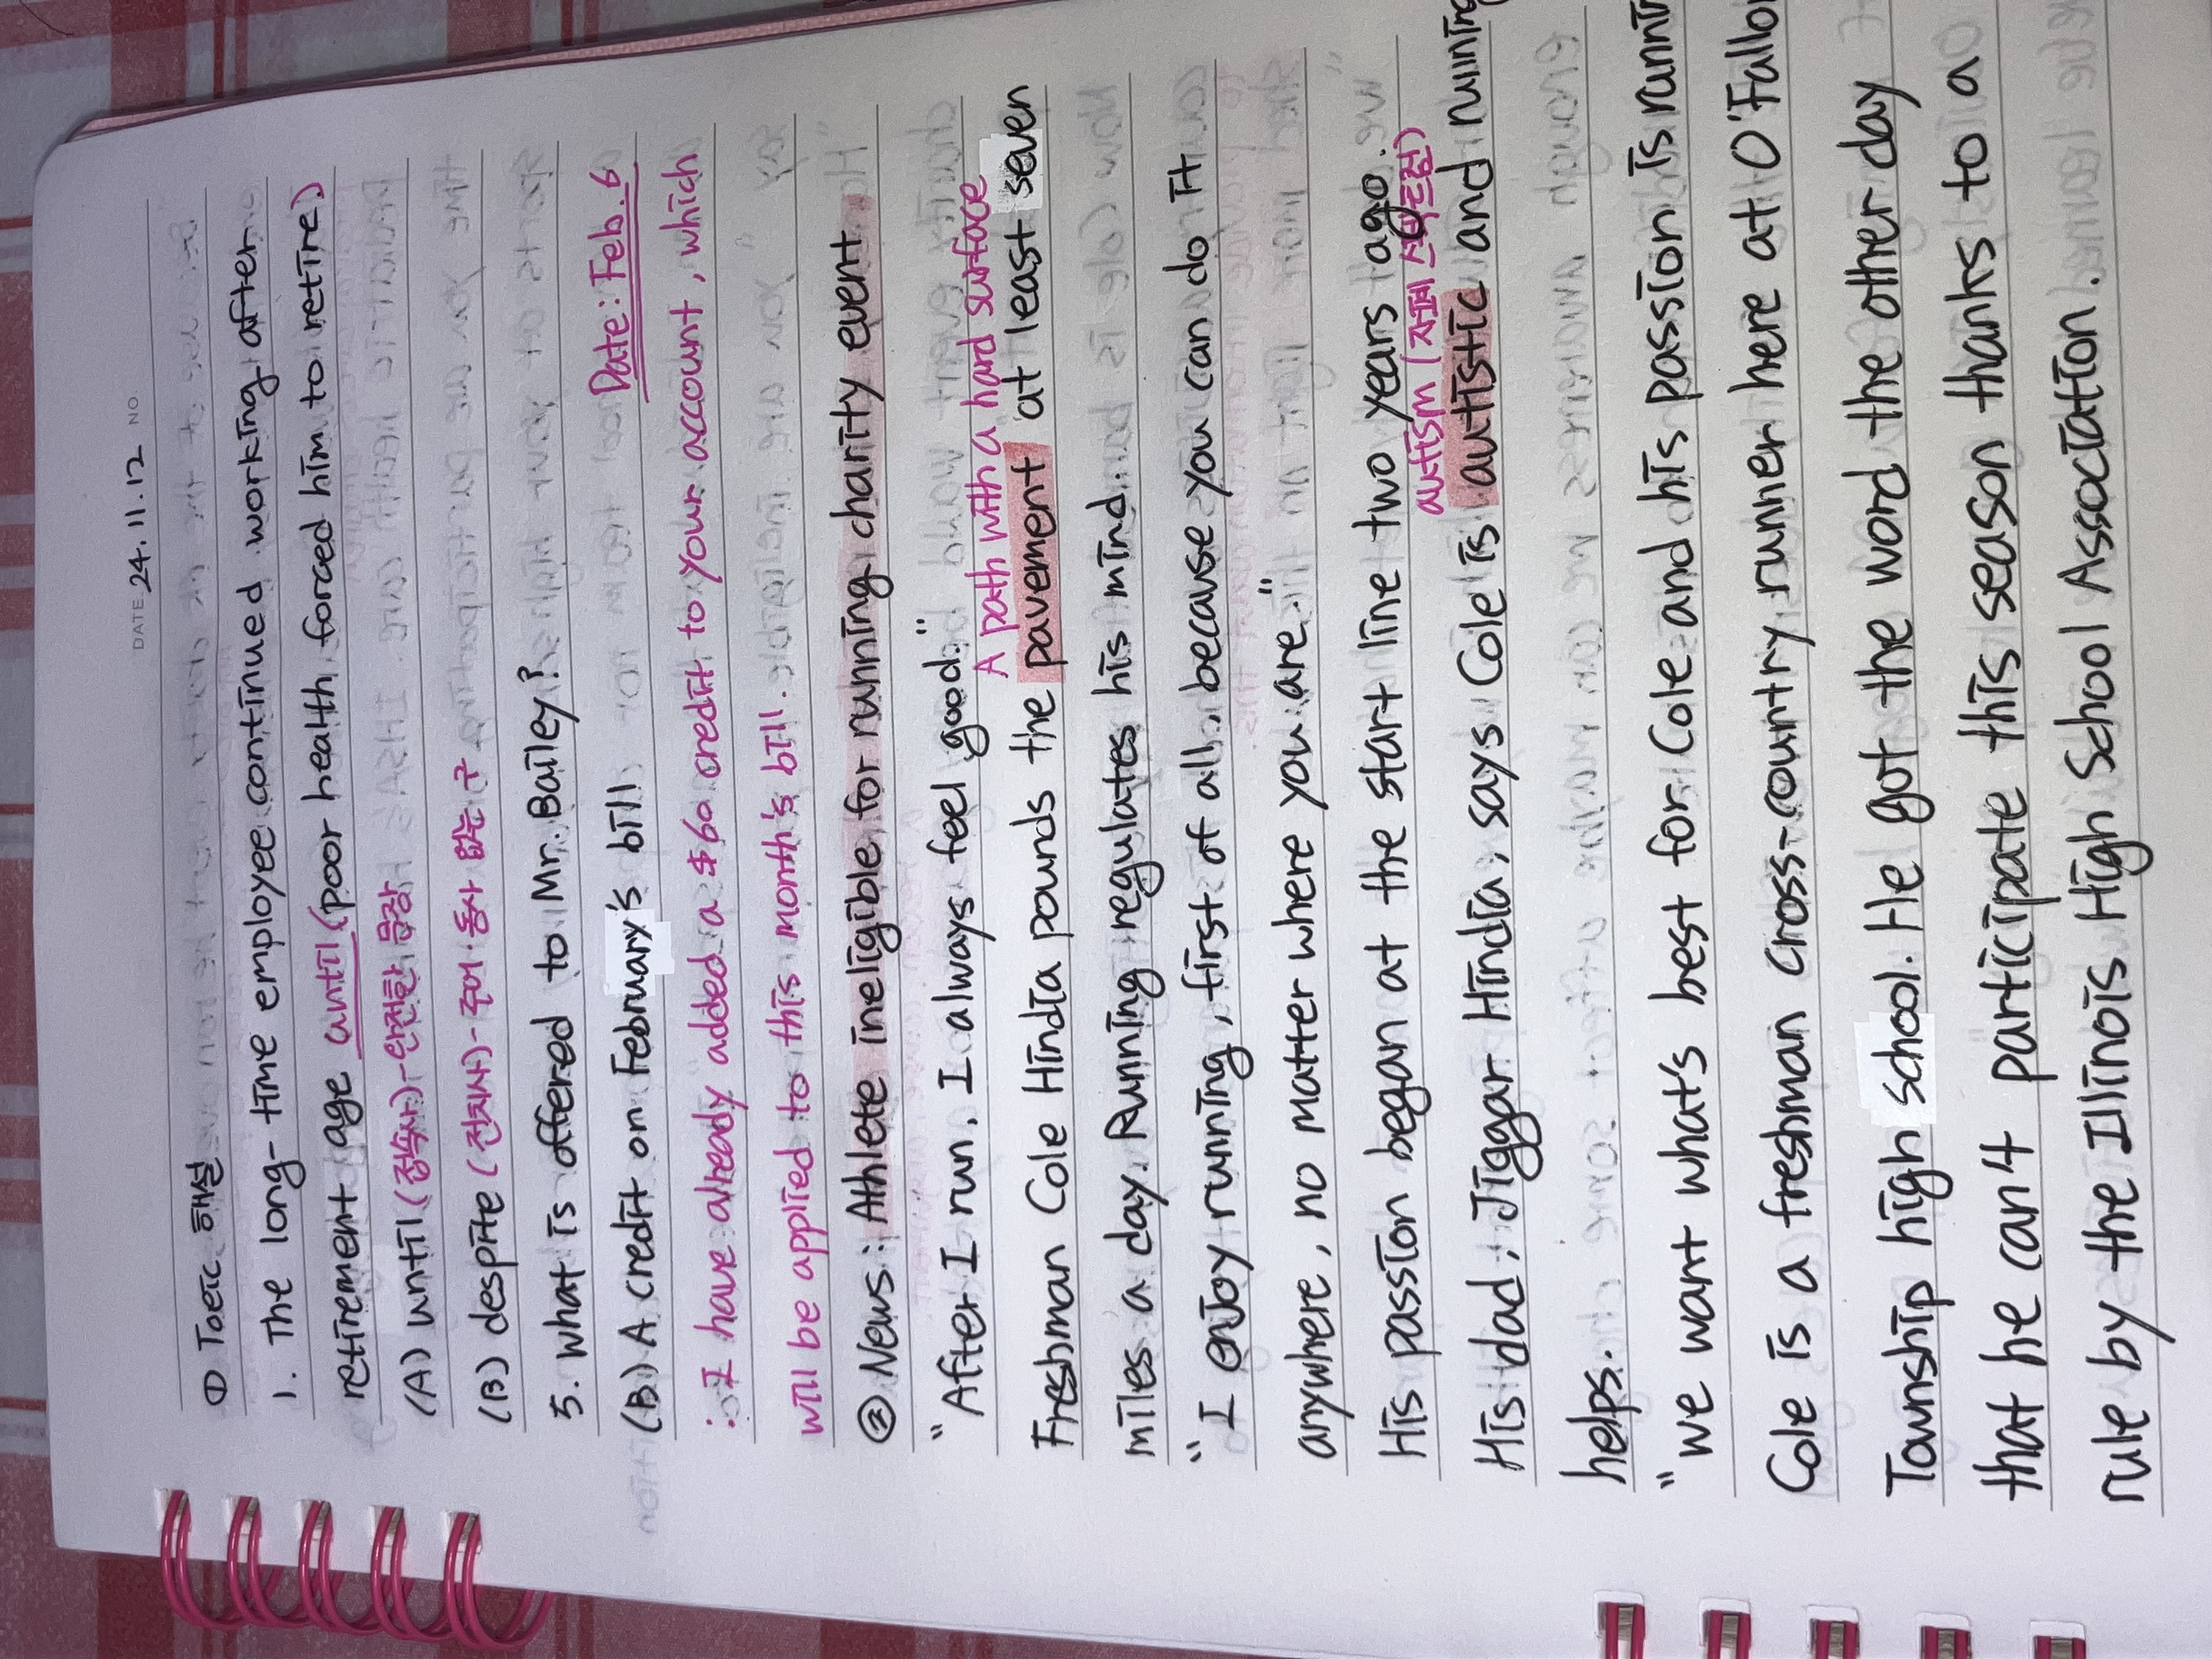 DATE 24.11.12 NO
① Toeic 해설
1. The long-time employee continued working after
retirement age until (poor health forced him to retire.)
(A) until (접속사)-완전한 문장
(B) despite (전치사)-주어·동사 없는 구
5. what is offered to Mr. Bailey?
Date: Feb. 6
(B) A credit on February's bill
: I have already added a $60 credit to your account, which
will be applied to this month's bill.
② News: Athlete ineligible for running charity event.
"After I run, I always feel good."
A path with a hard surface
Freshman Cole Hindia pounds the pavement at least seven
miles a day. Running regulates his mind.
"I enjoy running, first of all, because you can do it
anywhere, no matter where you are."
His passion began at the start line two years ago.
autism (자폐 스펙트럼)
His dad, Jiggar Hindia, says Cole is autistic and running
helps.
"we want what's best for Cole and his passion is runnin
Cole is a freshman cross-country runner here at O'Fallo
Township high school. He got the word the other day
that he can't participate this season thanks to a
rule by the Illinois High School Association.